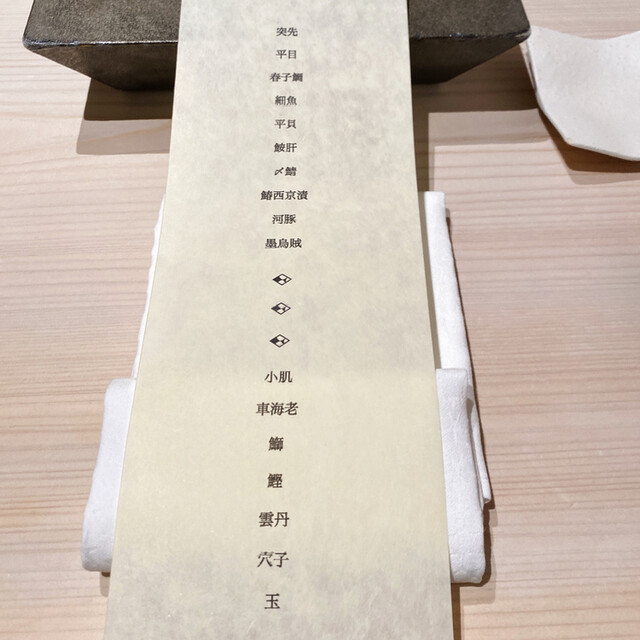 突先
平目
春子鯛
細魚
平貝
鮟肝
〆鯖
鰆西京漬
河豚
墨烏賊
小肌
車海老
鰤
鰹
雲丹
穴子
玉